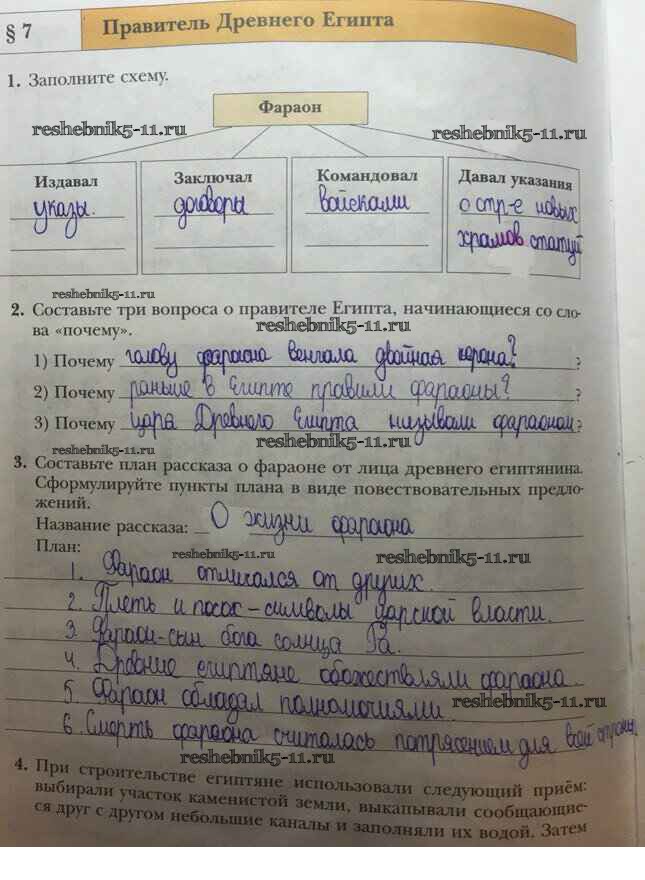 § 7
Правитель Древнего Египта
1. Заполните схему.
Фараон
reshebnik5-11.ru
reshebnik5-11.ru
Издавал
указы.
Заключал
договоры
Командовал
войсками
Давал указания
о стр-е новых
храмов статуй
reshebnik5-11.ru
2. Составьте три вопроса о правителе Египта, начинающиеся со сло-
ва «почему».
reshebnik5-11.ru
1) Почему голову фараона венчала двойная корона? ?
2) Почему раньше в Египте правили фараоны? ?
3) Почему царя Древнего Египта называли фараоном ?
reshebnik5-11.ru
reshebnik5-11.ru
3. Составьте план рассказа о фараоне от лица древнего египтянина.
Сформулируйте пункты плана в виде повествовательных предло-
жений.
Название рассказа: О жизни фараона
План:
reshebnik5-11.ru
reshebnik5-11.ru
1. Фараон отличался от других.
2. Плеть и посох - символы царской власти.
3. Фараон-сын бога солнца Ра.
4. Древние египтяне обожествляли фараона.
5. Фараон обладал полномочиями.
reshebnik5-11.ru
6. Смерть фараона считалась потрясением для всей страны
reshebnik5-11.ru
4. При строительстве египтяне использовали следующий приём:
выбирали участок каменистой земли, выкапывали сообщающие-
ся друг с другом небольшие каналы и заполняли их водой. Затем